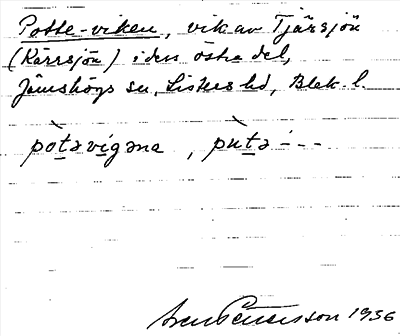 Potte-viken, vik av Tjärsjön
(Kärrsjön) i dess östra del,
Jämshögs sn, Listers hd, Blek. l.
pòtavigəna, pùtə - - -
Sven Petersson 1936